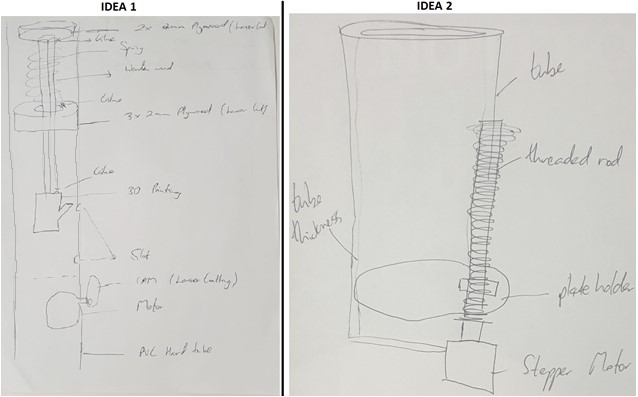 IDEA 1
2x 2mm Plywood (Laser Cut)
Glue
Spring
Wooden rod
Glue
3x2mm Plywood (Laser Cut)
Glue
3D Printing
Slot
CAM (Laser Cutting)
Motor
PVC Hard tube
IDEA 2
tube
threaded rod
tube
thickness
plate holder
Stepper Motor